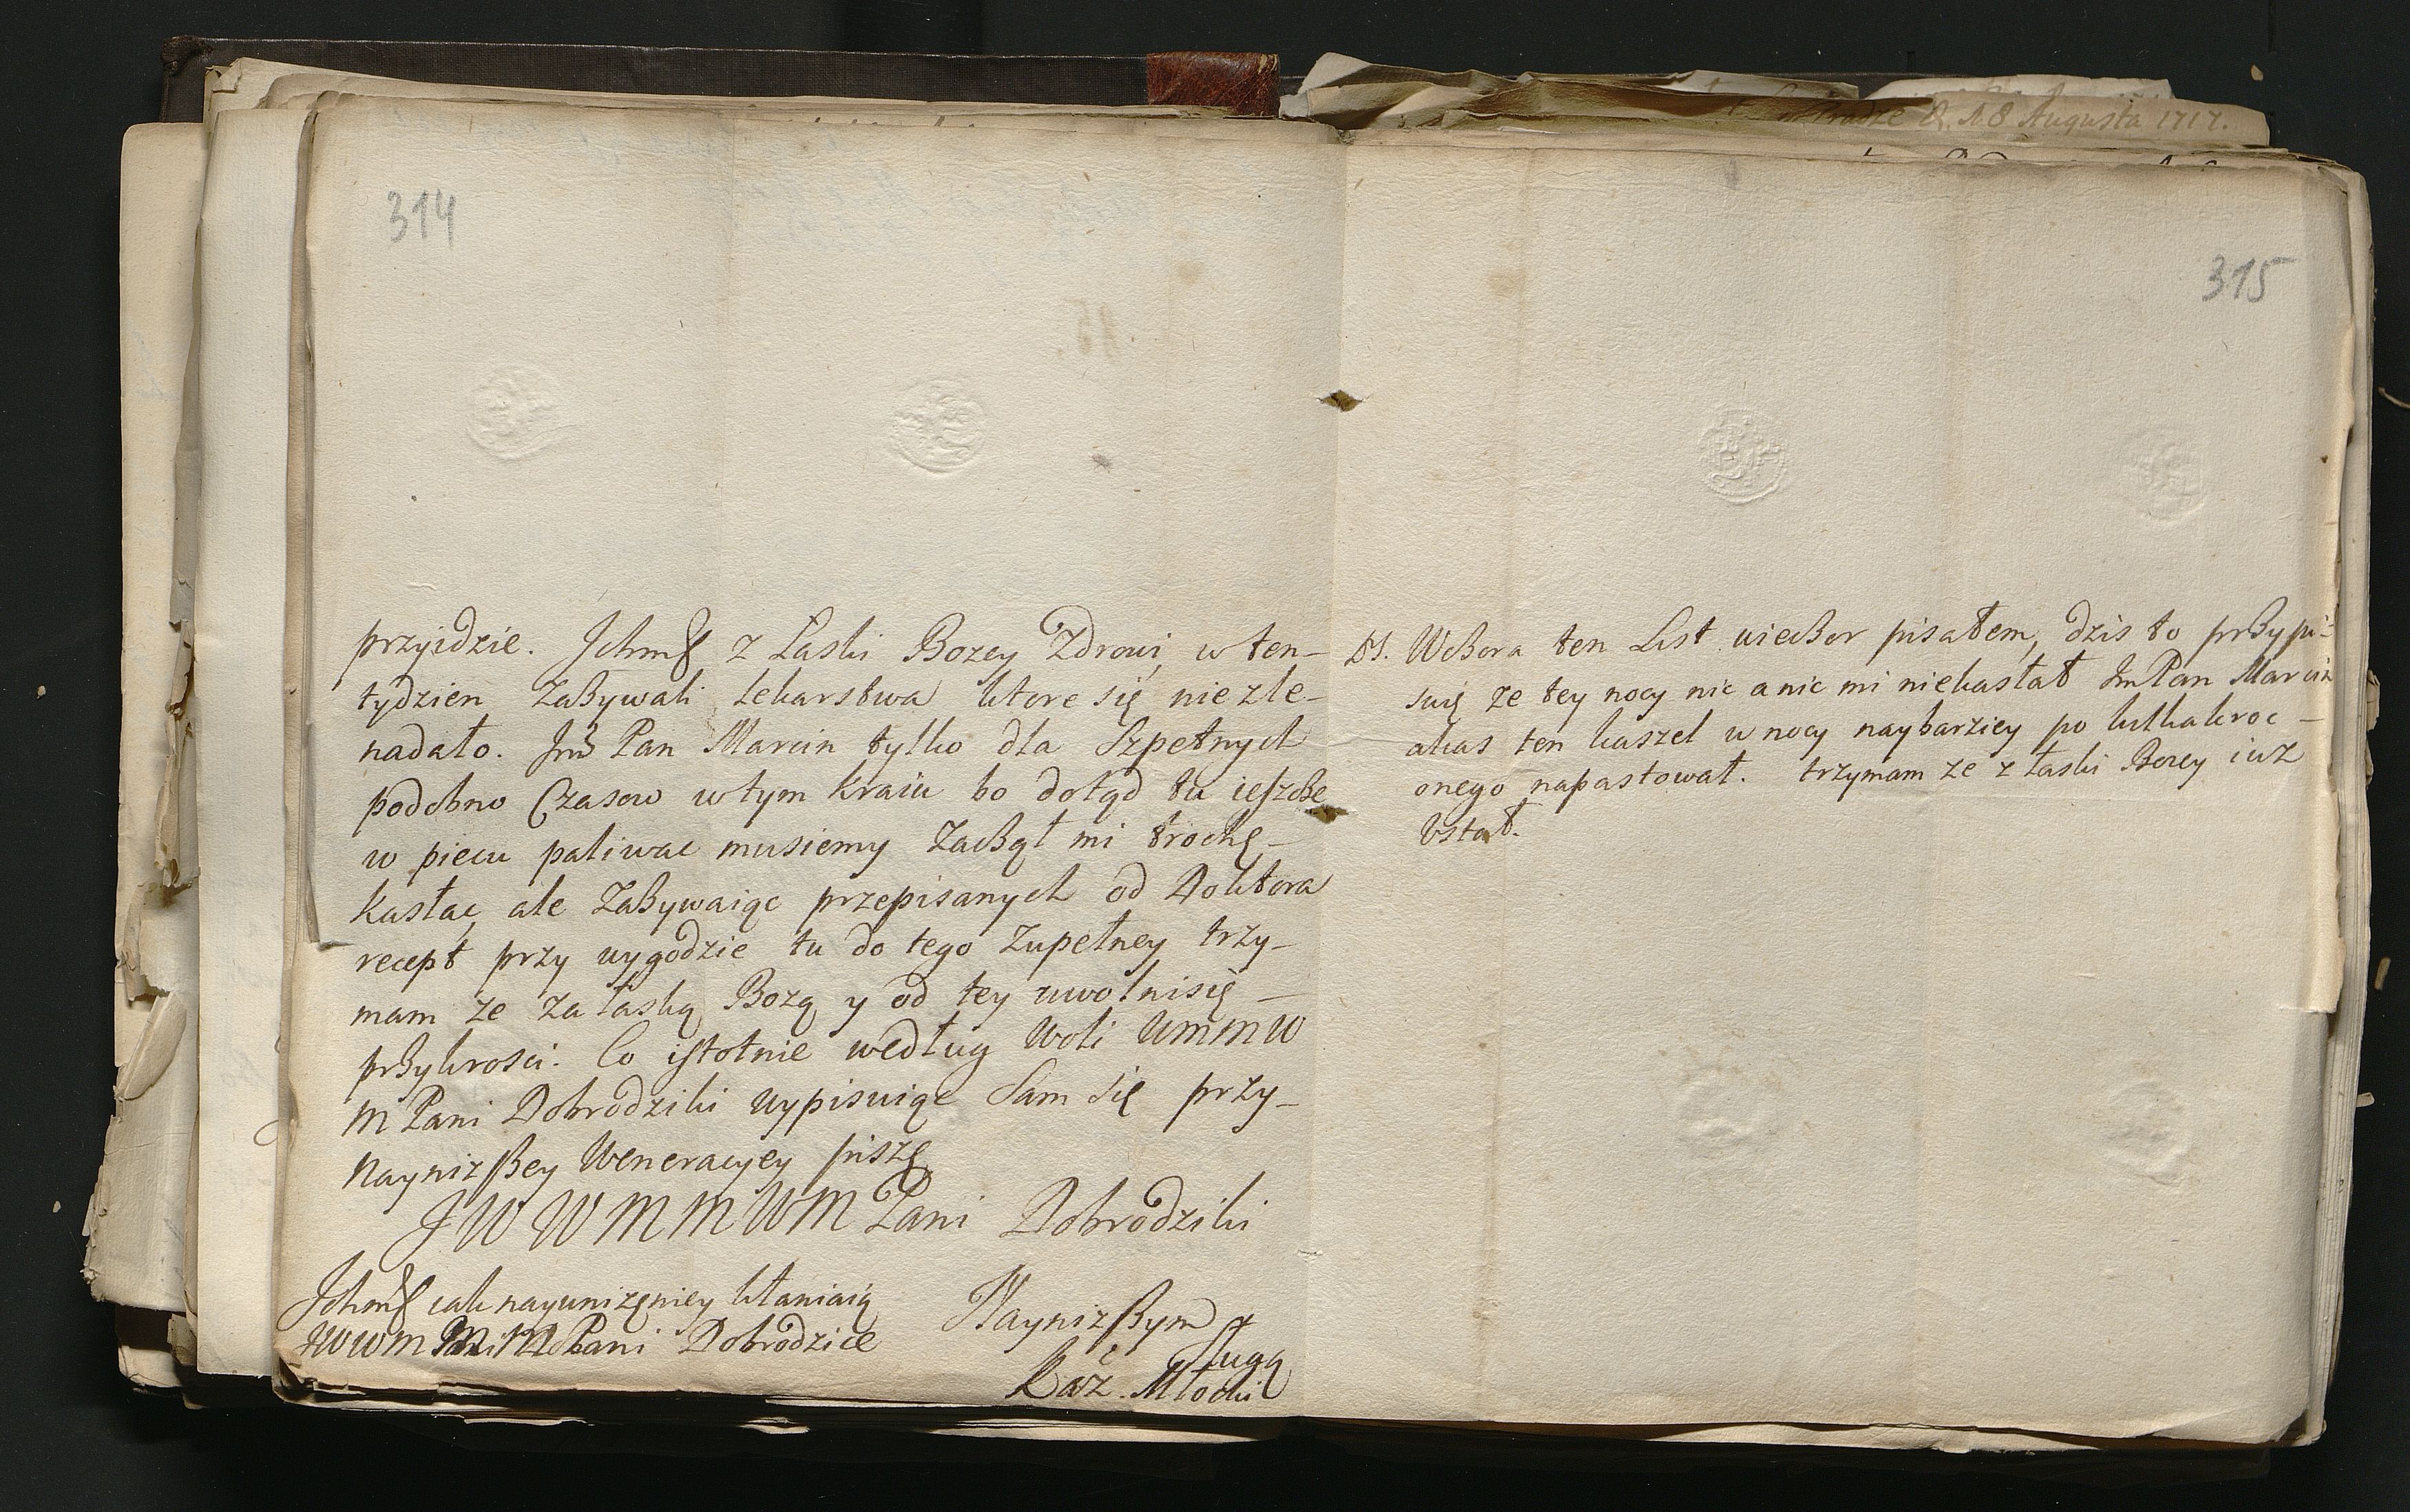 314
przyidzie. Jchmść z Laski Bozey Zdrowi, w ten-
tydzien Zaßywali Lekarstwa ktore się nie zle-
nadało. Jmć Pan Marcin tylko dla Szpetnych
podobno Czasow w tym Kraiu bo dotąd tu ieszcze
w piecu paliwac musiemy Zaczął mi trochę-
Kasłac, ale Zaßywaiąc przepisanych od Doktora
recept przy wygodzie tu do tego Zupełney trzy-
mam ze Za łaską Bozą y od tey uwolni się-
przykrosci. Co istotnie według Woli WMMW
M Pani Dobrodziki wypisuiąc Sam się przy-
Naynizßey Weneracyey piszę
JWWMMWM Pani Dobrodziki
Jchmść cale nayunizęniey kłaniaią
JWWM Pani Dobrodzice
Nayniz ßym
sługą
Kaź. Młocki
315
PS. Wczora ten List wieczor pisałem, dzis to przypi-
suię ze tey nocy nic a nic mi niekasłał Jm Pan Marcin
akas ten kaszel w nocy naybarziey po kilkakroc-
onego napastował. trzymam ze z łaski Bozey iuz
Vstał.
8 Augusta 1717.